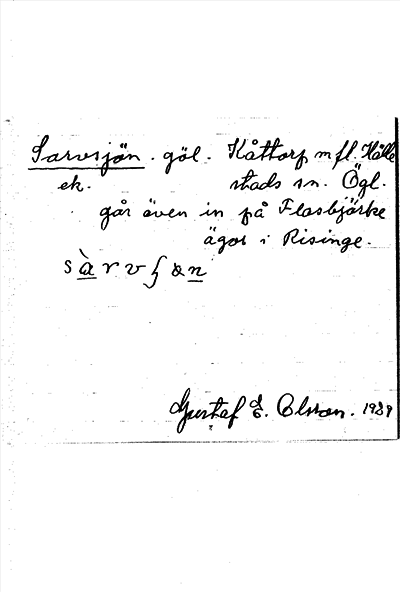 Sarvsjön. göl. Kåttorp m fl. Hälle
ek. stads sn. Ögl.
går även in på Flasbjörke
ägor i Risinge.
s à r v ʃ ɷ n
Gustaf E. Olsson. 1939